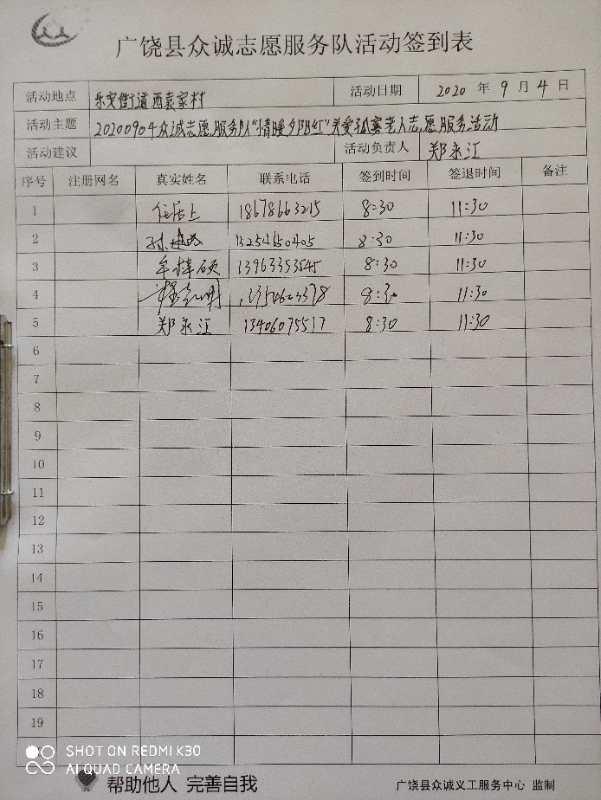 广饶县众诚志愿服务队活动签到表
活动地点 乐安街道西袁家村 活动日期 2020 年 9 月 4 日
活动主题 20200904众诚志愿服务队"情暖夕阳红"关爱孤寡老人志愿服务活动
活动建议 活动负责人 郑永江
序号 注册网名 真实姓名 联系电话 签到时间 签退时间 备注
1 18678663215 8:30 11:30
2 13254650405 8:30 11:30
3 13963353545 8:30 11:30
4 8:30 11:30
5 郑永江 13406075517 8:30 11:30
6
7
8
9
10
11
12
13
14
15
16
17
18
19
SHOT ON REDMI K30
AI QUAD CAMERA
帮助他人 完善自我
广饶县众诚义工服务中心 监制